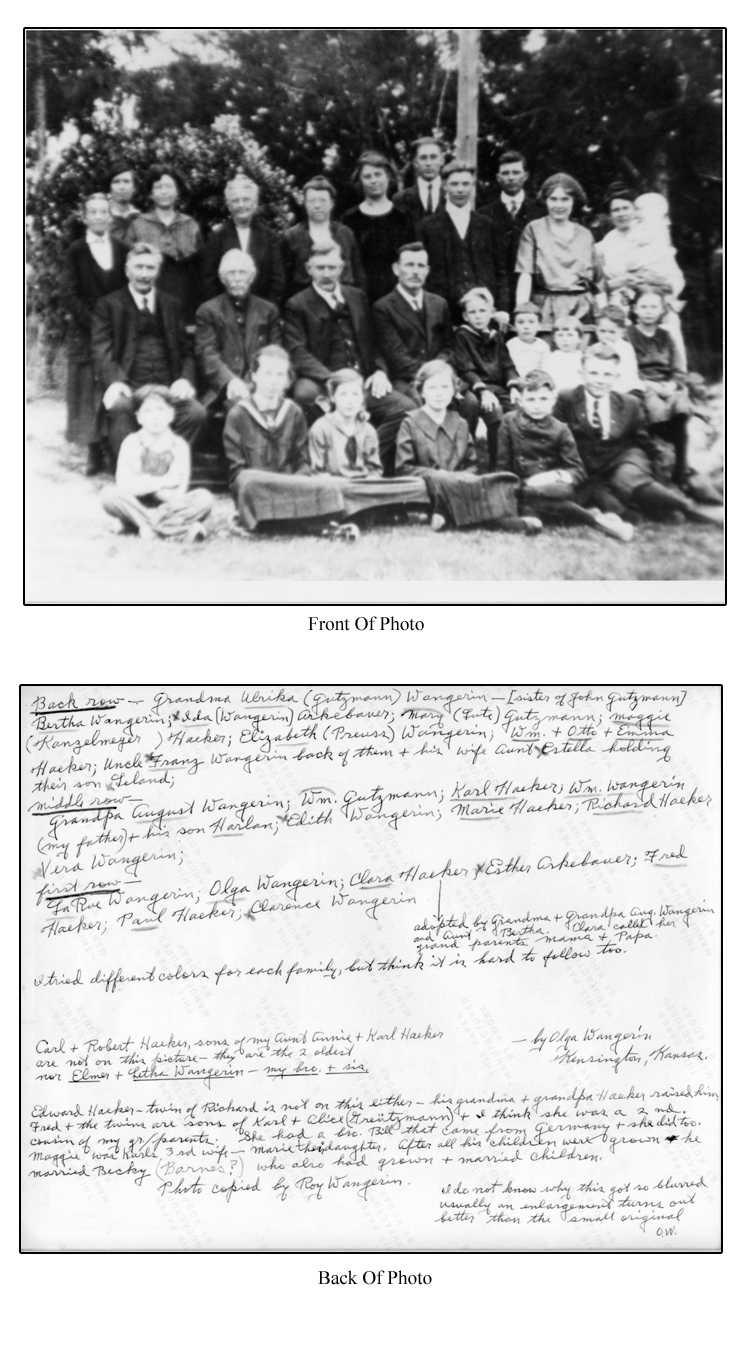 Front Of Photo
Back row — Grandma Ulrika (Gutzmann) Wangerin — [sister of John Gutzmann]
Bertha Wangerin; Ida (Wangerin) Arkebauer; Mary (Lutz) Gutzmann; Maggie
(Kanzelmeyer ) Haeker; Elizabeth (Preuss) Wangerin; Wm. + Otto + Emma
Haeker; Uncle Franz Wangerin back of them + his wife Aunt Estella holding
their son Leland;
middle row —
Grandpa August Wangerin; Wm. Gutzmann; Karl Haeker; Wm. Wangerin
(my father) + his son Harlan; Edith Wangerin; Marie Haeker; Richard Haeker
Vera Wangerin;
first row —
LaRue Wangerin; Olga Wangerin; Clara Haeker; Esther Arkebauer; Fred
Haeker; Paul Haeker; Clarence Wangerin
adopted by Grandma + Grandpa Aug. Wangerin
and Aunt Bertha. Clara called her
grand parents mama + Papa.
I tried different colors for each family, but think it is hard to follow too.
Carl + Robert Haeker, sons of my Aunt Annie + Karl Haeker
are not on this picture — they are the 2 oldest
nor Elmer + Letha Wangerin — my bro. + sis.
— by Olga Wangerin
Kensington, Kansas.
Edward Haeker — twin of Richard is not on this either — his grandma + grandpa Haeker raised him
Fred + the twins are sons of Karl + Alice (Gruetzmann) + I think she was a 2 nd.
cousin of my gr/parents. She had a bro. Bill that came from Germany + she did too.
Maggie was Karls 3rd wife — Marie their daughter. After all his children were grown he
married Becky (Barnes?) who also had grown + married children.
Photo copied by Roy Wangerin.
I do not know why this got so blurred
usually an enlargement turns out
better than the small original
O.W.
Back Of Photo